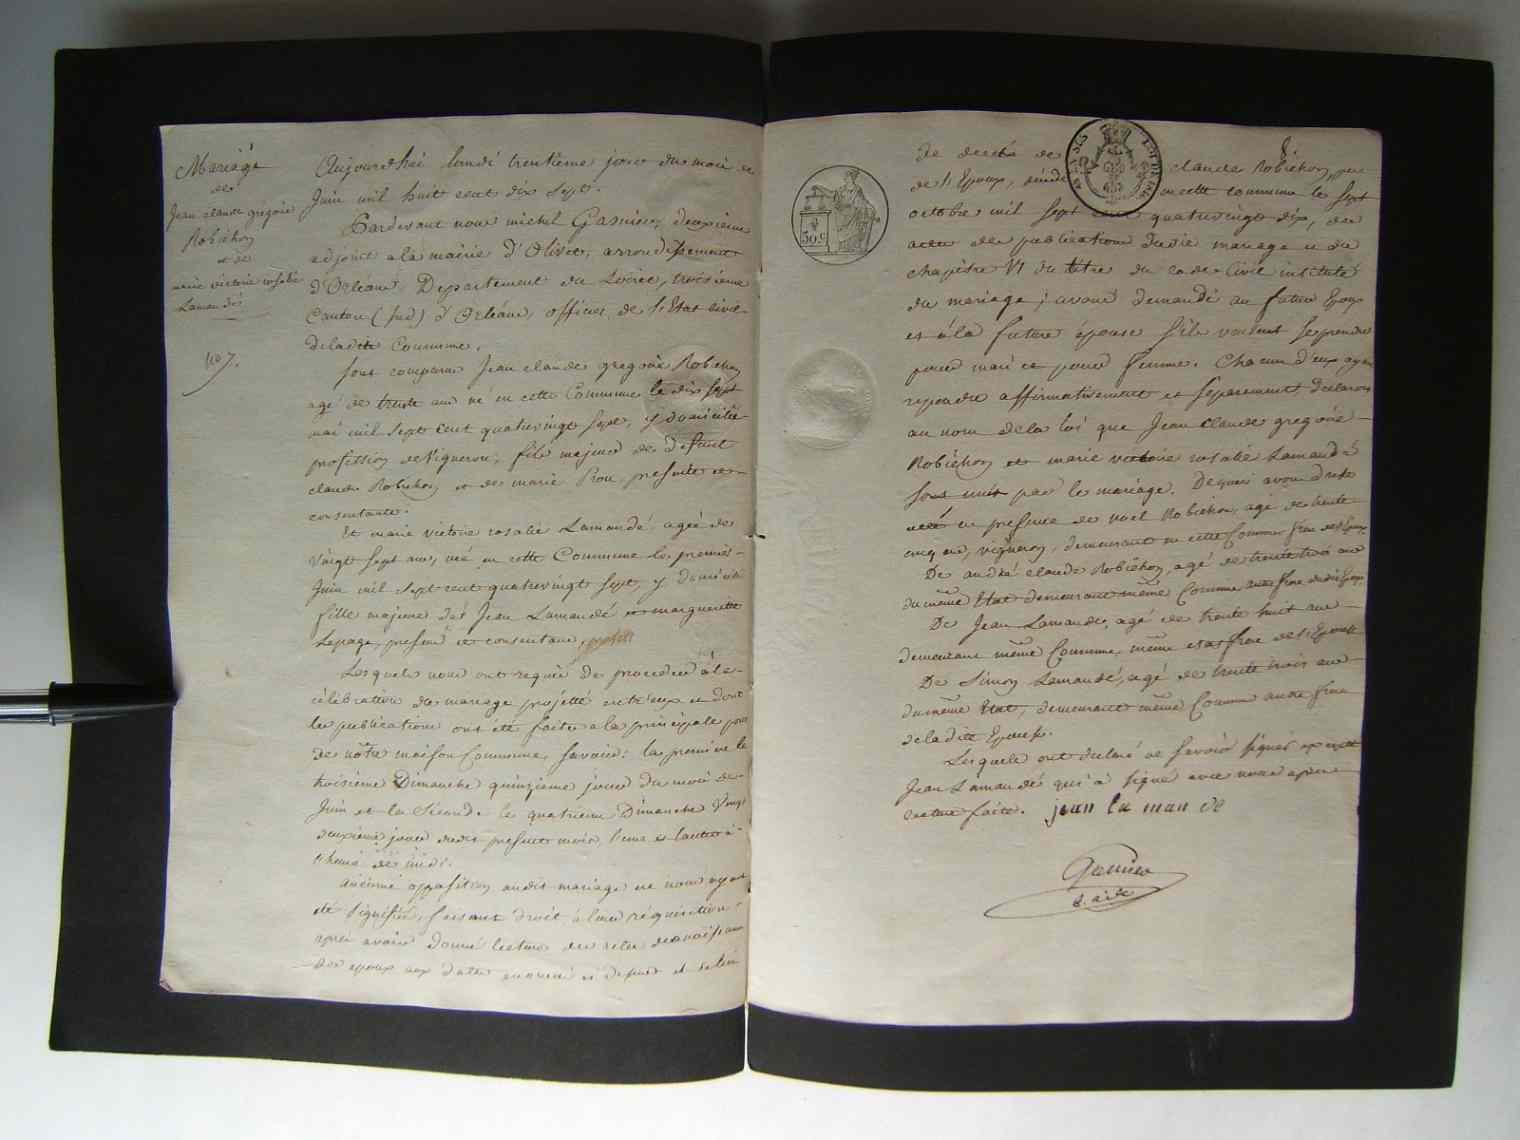 Mariage
de
Jean claude grégoire
Robichon
et de
marie victoire rosalie
Lamandé
no 7.
Aujourdhui lundi trentième jour du mois de
Juin mil huit cent dix sept.
Pardevant nous michel Gasnier, deuxième
adjoint a la mairie d'Olivet, arrondissement
d'Orléans, Departement du Loiret, troisième
Canton (sud) d'Orléans, officier de l'Etat civil
deladite Commune,
sont comparus Jean claude gregoire Robichon
agé de trente ans né en cette Commune le dix sept
mai mil sept cent quatrevingt sept, y domicilié
profession de vigneron, fils majeur de défunt
claude Robichon et de marie Prou, presente et
consentante.
Et marie victoire rosalie Lamandé agée de
vingt sept ans, née en cette Commune le premier
Juin mil sept cent quatrevingt sept, y domiciliée
fille majeure de Jean Lamandé et marguerite
Lepage, present et consentans,
Lesquels nous ont requis de proceder à la
célébration du mariage projetté entr'eux et dont
les publications ont été faites a la principale porte
de nôtre maison Commune, savoir: la première le
troisième Dimanche quinzième jour du mois de
Juin et la Seconde le quatrième Dimanche vingt
deuxième jour dudit present mois, l'une et l'autre à
l'heure de midi.
Aucune opposition audit mariage ne nous ayant
été signifiée, faisant droit à leur réquisition
après avoir donné lecture des actes de naissance
des epoux aux dates enoncées ci dessus et celui
8.
de decès de claude Robichon, père
de l'Epoux, decédé en cette commune le sept
octobre mil sept cent quatrevingt dix, des
actes de publication dudit mariage et du
chapitre VI du titre du code Civil intitulé
du mariage; avons demandé au futur Epoux
et à la future épouse s'ils veulent se prendre
pour mari et pour femme. Chacun d'eux ayant
repondu affirmativement et separement, declarons
au nom de la loi que Jean claude gregoire
Robichon et marie victoire rosalie Lamandé
sont unis par le mariage. De quoi avons dressé
acte en presence de noel Robichon, agé de trente
cinq ans, vigneron, demeurant en cette Commune frere de l'Epoux
De andré claude Robichon, agé de trente trois ans
du même Etat demeurant même Commune autre frere dudit Epoux
De Jean Lamandé, agé de trente huit ans
demeurant même Commune, même etat frere de l'Epouse
De Simon Lamandé, agé de trente trois ans
du même Etat, demeurant même Commune autre frere
de ladite Epouse.
Lesquels ont declaré ne savoir signer excepté
Jean Lamandé qui a signé avec nous après
lecture faite. jean la man de
Gasnier
30.C